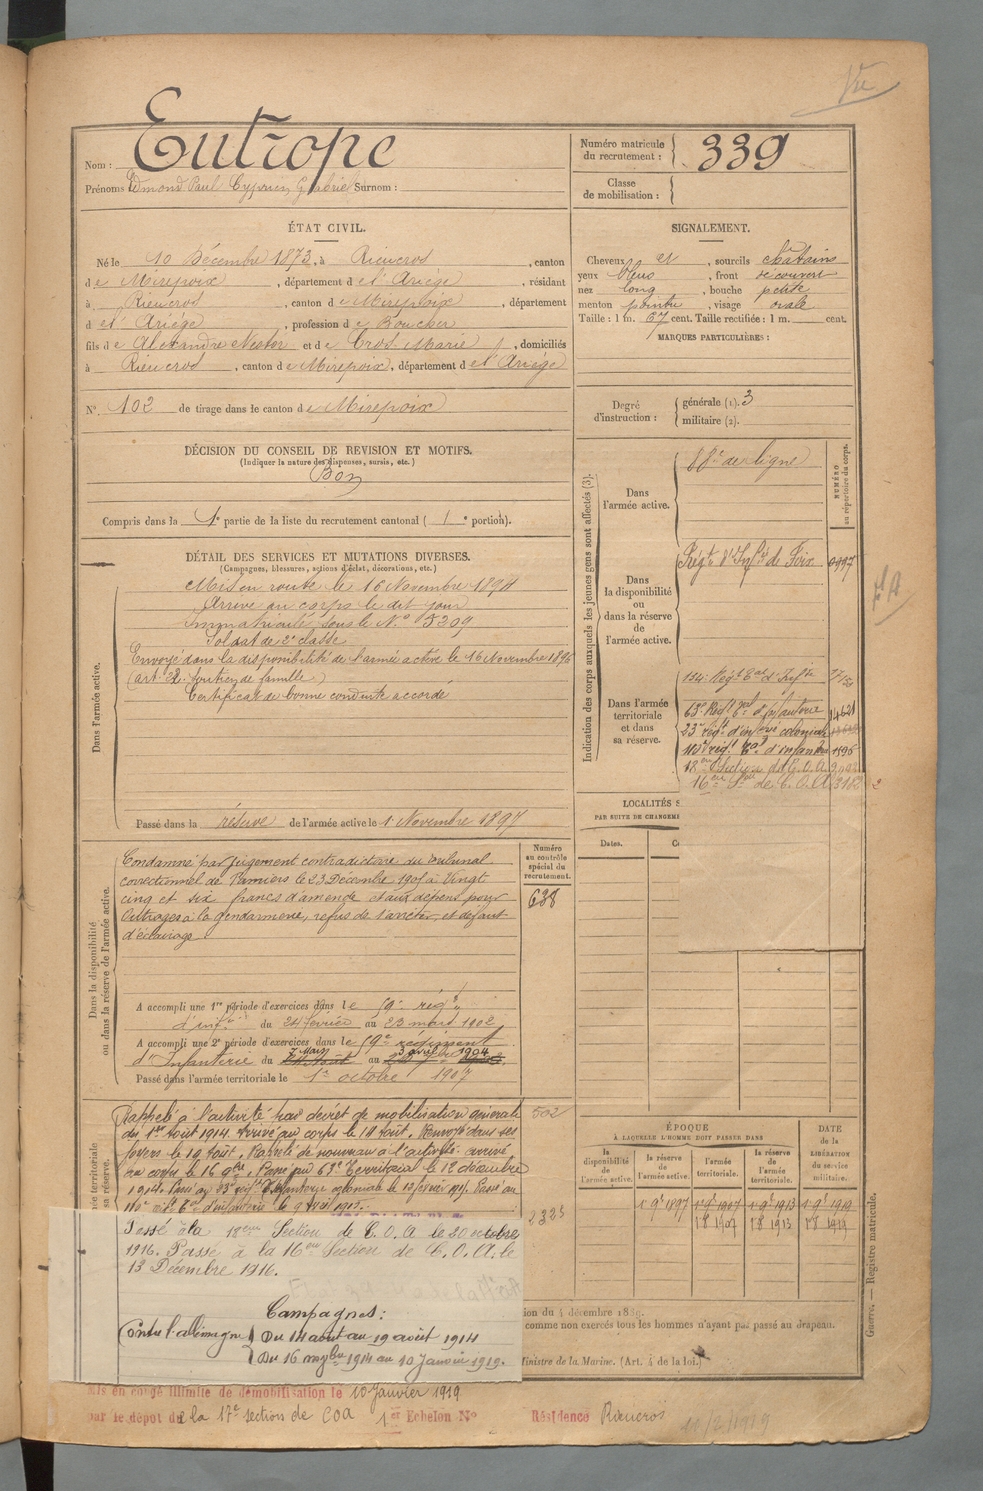 Vu
Nom : Eutrope
Prénoms Edmond Paul Cyprien Gabriel Surnom :
Numéro matricule du recrutement : 339
Classe de mobilisation :
ÉTAT CIVIL.
Né le 10 Décembre 1873, à Rieucros, canton
de Mirepoix, département de l'Ariége, résidant
à Rieucros, canton de Mirepoix, département
de l'Ariége, profession de Boucher
fils de Alexandre Nestor et de Cros Marie, domiciliés
à Rieucros, canton de Mirepoix, département de l'Ariége
N°. 102 de tirage dans le canton de Mirepoix
SIGNALEMENT.
Cheveux et, sourcils châtains
yeux bleus, front découvert
nez long, bouche petite
menton pointu, visage ovale
Taille : 1 m. 67 cent. Taille rectifiée : 1 m. cent.
MARQUES PARTICULIÈRES :
Degré d'instruction : générale (1). 3
militaire (2).
DÉCISION DU CONSEIL DE REVISION ET MOTIFS.
(Indiquer la nature des dispenses, sursis, etc.)
Bon
Compris dans la 1e partie de la liste du recrutement cantonal ( 1e portion).
DÉTAIL DES SERVICES ET MUTATIONS DIVERSES.
(Campagnes, blessures, actions d'éclat, décorations, etc.)
Dans l'armée active.
Mis en route le 16 Novembre 1894
Arrivé au corps le dit jour
Immatriculé sous le N° 5209
Soldat de 2e classe
Envoyé dans la disponibilité de l'armée active le 16 Novembre 1896
(art. 22. soutien de famille)
Certificat de bonne conduite accordé
Passé dans la réserve de l'armée active le 1 Novembre 1897
Indication des corps auxquels les jeunes gens sont affectés (3).
NUMÉRO au répertoire du corps.
Dans l'armée active.
88e de ligne
Dans la disponibilité ou dans la réserve de l'armée active.
Régt d'Infie de Foix 0997
Dans l'armée territoriale et dans sa réserve.
134e Régt Tal d'Infie
63e Régt Tal d'Infanterie 14621
23e régt d'infie coloniale
110e régt Tal d'infanterie 1596
18e Section de C.O.A.
16eme Son de C.O.A. 3182
LOCALITÉS S
PAR SUITE DE CHANGEME
Dates.
Dans la disponibilité ou dans la réserve de l'armée active.
Numéro au contrôle spécial du recrutement.
638
Condamné par jugement contradictoire du tribunal
correctionnel de Pamiers le 23 Décembre 1905 à Vingt
cinq et six francs d'amende et aux dépens pour
Outrages à la gendarmerie, refus de s'arrêter, et défaut
d'éclairage
A accompli une 1re période d'exercices dans le 59e régt
d'infie du 24 février au 23 mars 1902
A accompli une 2e période d'exercices dans le 59e régiment
d'Infanterie du 7 Mars au 3 avril 1904
Passé dans l'armée territoriale le 1er octobre 1907
502
Rappelé à l'activité par décret de mobilisation générale
du 1er Août 1914. Arrivé au corps le 14 Août. Renvoyé dans ses
foyers le 19 Août. Rappelé de nouveau à l'activité. arrivé
au corps le 16 9bre. Passé au 63e Territorial le 12 décembre
1914. Passé au 23e régt d'Infanterie coloniale le 10 février 1915. Passé au
110e régt Tal d'infanterie le 9 Avril 1915.
2323
Passé à la 18eme Section de C.O.A le 20 octobre
1916. Passé à la 16eme Section de C.O.A. le
13 Décembre 1916.
Campagnes :
Contre l'allemagne Du 14 aout au 19 août 1914
Du 16 novbre 1914 au 10 Janvier 1919.
ÉPOQUE
À LAQUELLE L'HOMME DOIT PASSER DANS
DATE de la LIBÉRATION du service militaire.
la disponibilité de l'armée active.
la réserve de l'armée active.
l'armée territoriale.
la réserve de l'armée territoriale.
1 9e 1897 1 9e 1907 1 9e 1913 1 9e 1919
1 8 1907 1 8 1913 1 8 1919
ion du 4 décembre 1889.
comme non exercés tous les hommes n'ayant pas passé au drapeau.
Ministre de la Marine. (Art. 4 de la loi.)
Guerre. — Registre matricule.
Mis en congé illimité de démobilisation le 10 Janvier 1919
par le dépot de la 17e section de COA 1er Echelon N° Résidence Rieucros